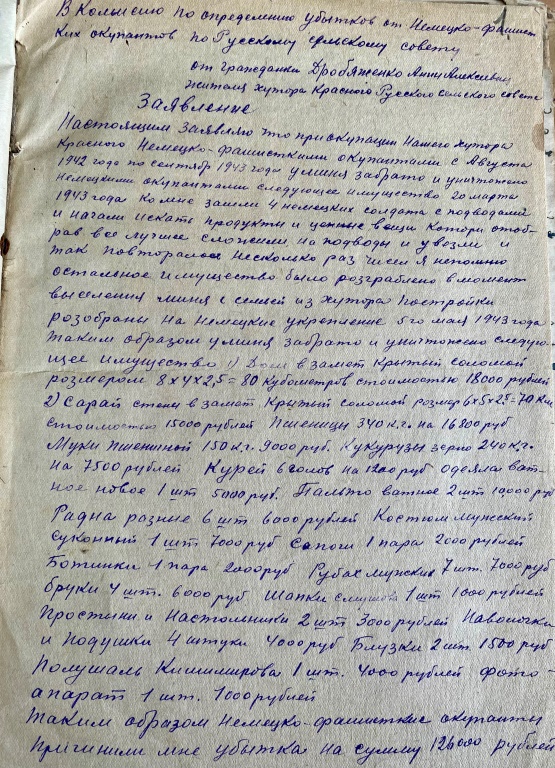 1
В Комысию по определению убытков от Немецко-фашист
ких окупантов по Русскому сельскому совету
от гражданки Дробяженко Анны Алексеевны
жителя хутора Красного Русского сельского совета
Заявление
Настоящим Заявляю что при окупации Нашего хутора
Красного Немецко-фашисткими окупантами с Августа
1942 года по сентябр 1943 года у миня забрато и уничтожено
Немецкими окупантами следующее имущество 20 марта
1943 года ко мне зашли 4 немецких солдата с подводами
и начали искать продукты и ценные вещи Котори отоб-
рав все лучшее сложили на подводы и увозли и
так повторалось Несколько раз чисел я непомню
остальное имущество было розграблено в момент
выселения миня с семей из хутора Постройки
розобраны на Немецкие укрепление 5го мая 1943 года
Таким образом у миня забрато и уничтожено следую-
щее имущество 1) Дом в замет Крытый соломой
розмером 8х4х2,5 = 80 кубометров стоимостью 18000 рублей
2) Сарай стены в замет Крытый соломой розмер 6х5х25=70 км
стоимостью 15000 рублей Пшеницы 340 кг. на 16800 руб
Муки Пшеничной 150 к.г. 9000 руб. Кукурузы зерно 240 к.г.
на 7500 рублей Курей 6 голов на 1200 руб одеяла ват-
ное новое 1 шт 5000 руб. Пальто ватное 2 шт 10000 руб
Радна разные 6 шт 6000 рублей Костюм Мужский
Суконный 1 шт 7000 руб Сапоги 1 пара 2000 рублей
Ботинки 1 пара 2000 руб Рубах мужских 7 шт. 7000 руб
бруки 4 шт. 6000 руб Шапки 1 шт 1000 рублей
Простыни и Настольники 2 шт 3000 рублей Наволочки
и Подушки 4 штуки 4000 руб Блузки 2 шт. 1500 руб
Полушаль Кишимирова 1 шт. 4000 рублей фото-
апарат 1 шт. 1000 рублей
Таким образом Немецко-фашисткие окупанты
Причинили мне убытка на сумму 126000 рублей